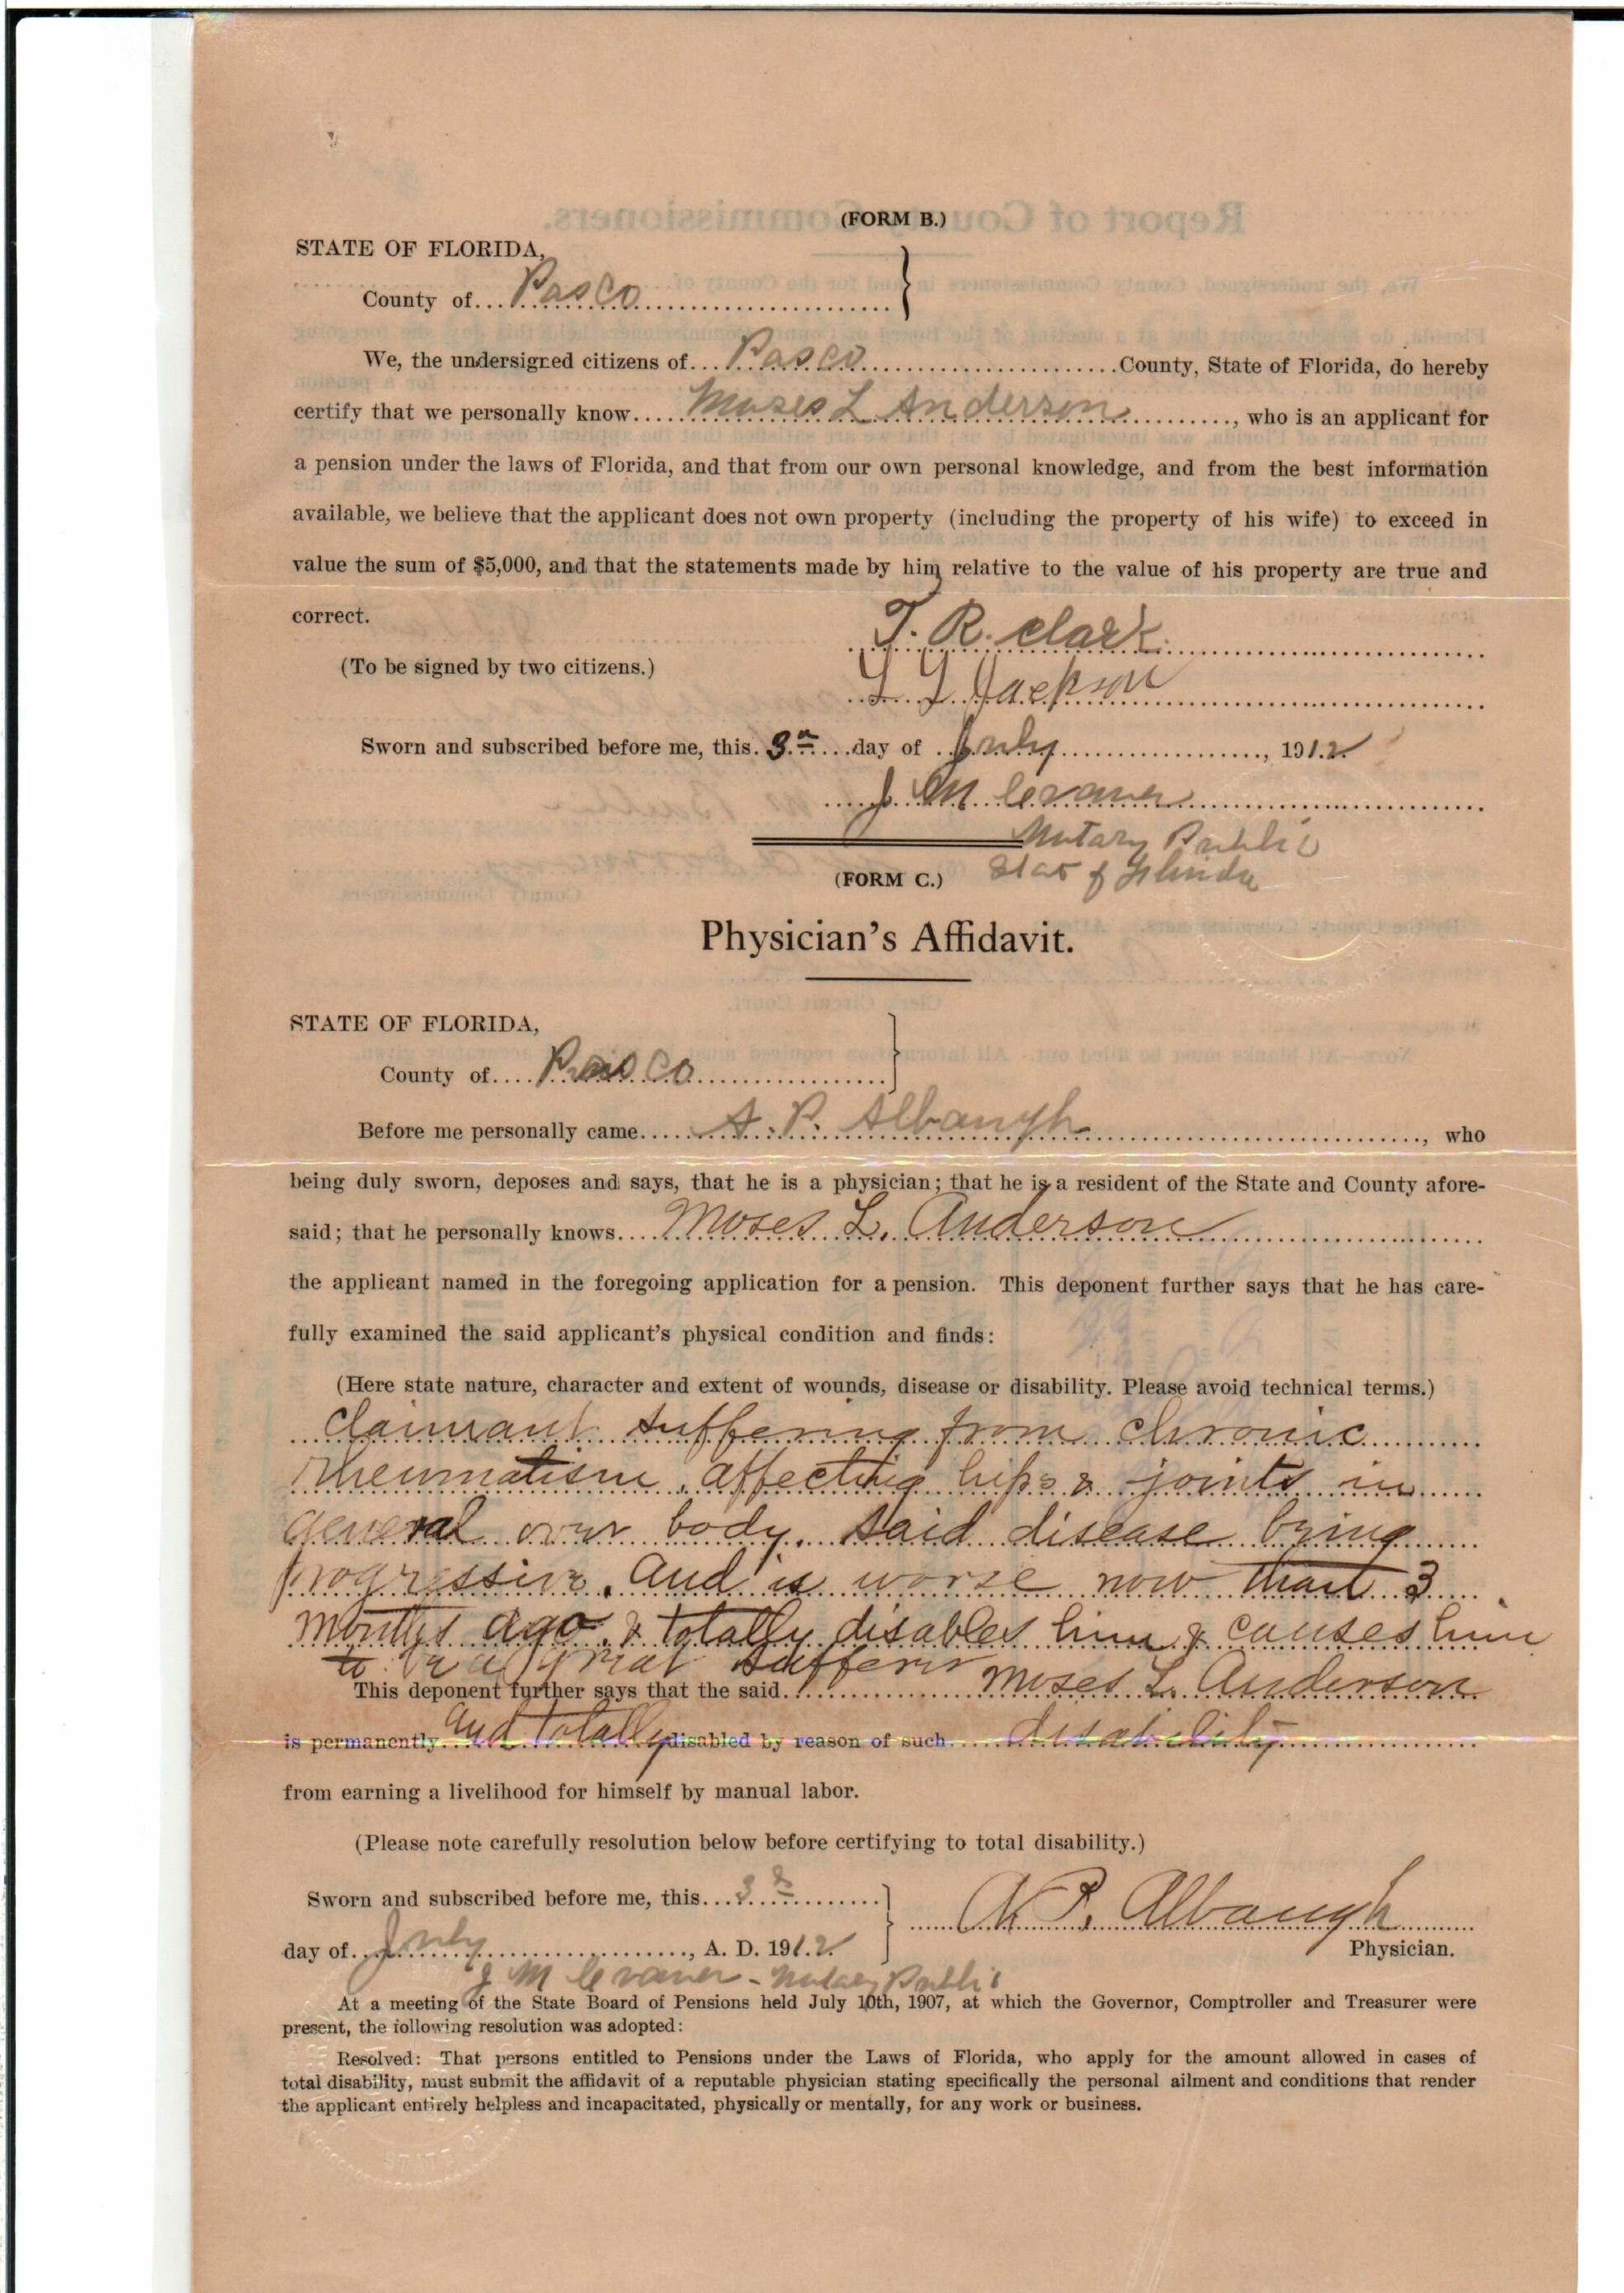 (FORM B.)
STATE OF FLORIDA,
County of... Pasco
We, the undersigned citizens of... Pasco County, State of Florida, do hereby
certify that we personally know..... Moses L Anderson, who is an applicant for
a pension under the laws of Florida, and that from our own personal knowledge, and from the best information
available, we believe that the applicant does not own property (including the property of his wife) to exceed in
value the sum of $5,000, and that the statements made by him relative to the value of his property are true and
correct.
T. R. Clark
(To be signed by two citizens.)
Jackson
Sworn and subscribed before me, this 3rd day of July, 1912
J. M.
Notary Public
State of Florida
(FORM C.)
Physician's Affidavit.
STATE OF FLORIDA,
County of.... Pasco
Before me personally came..... A. P. Albaugh, who
being duly sworn, deposes and says, that he is a physician; that he is a resident of the State and County afore-
said; that he personally knows.... Moses L. Anderson
the applicant named in the foregoing application for a pension. This deponent further says that he has care-
fully examined the said applicant's physical condition and finds:
(Here state nature, character and extent of wounds, disease or disability. Please avoid technical terms.)
Claimant suffering from chronic
rheumatism, affecting hips & joints in
general over body. Said disease being
progressive. And is worse now than 3
months ago. & totally disables him & causes him
to be a great sufferer
This deponent further says that the said. Moses L. Anderson
is permanently and totally disabled by reason of such.... disability
from earning a livelihood for himself by manual labor.
(Please note carefully resolution below before certifying to total disability.)
Sworn and subscribed before me, this... 3rd
A. P. Albaugh
day of July, A. D. 1912
Physician.
J M - Notary Public
At a meeting of the State Board of Pensions held July 10th, 1907, at which the Governor, Comptroller and Treasurer were
present, the following resolution was adopted:
Resolved: That persons entitled to Pensions under the Laws of Florida, who apply for the amount allowed in cases of
total disability, must submit the affidavit of a reputable physician stating specifically the personal ailment and conditions that render
the applicant entirely helpless and incapacitated, physically or mentally, for any work or business.